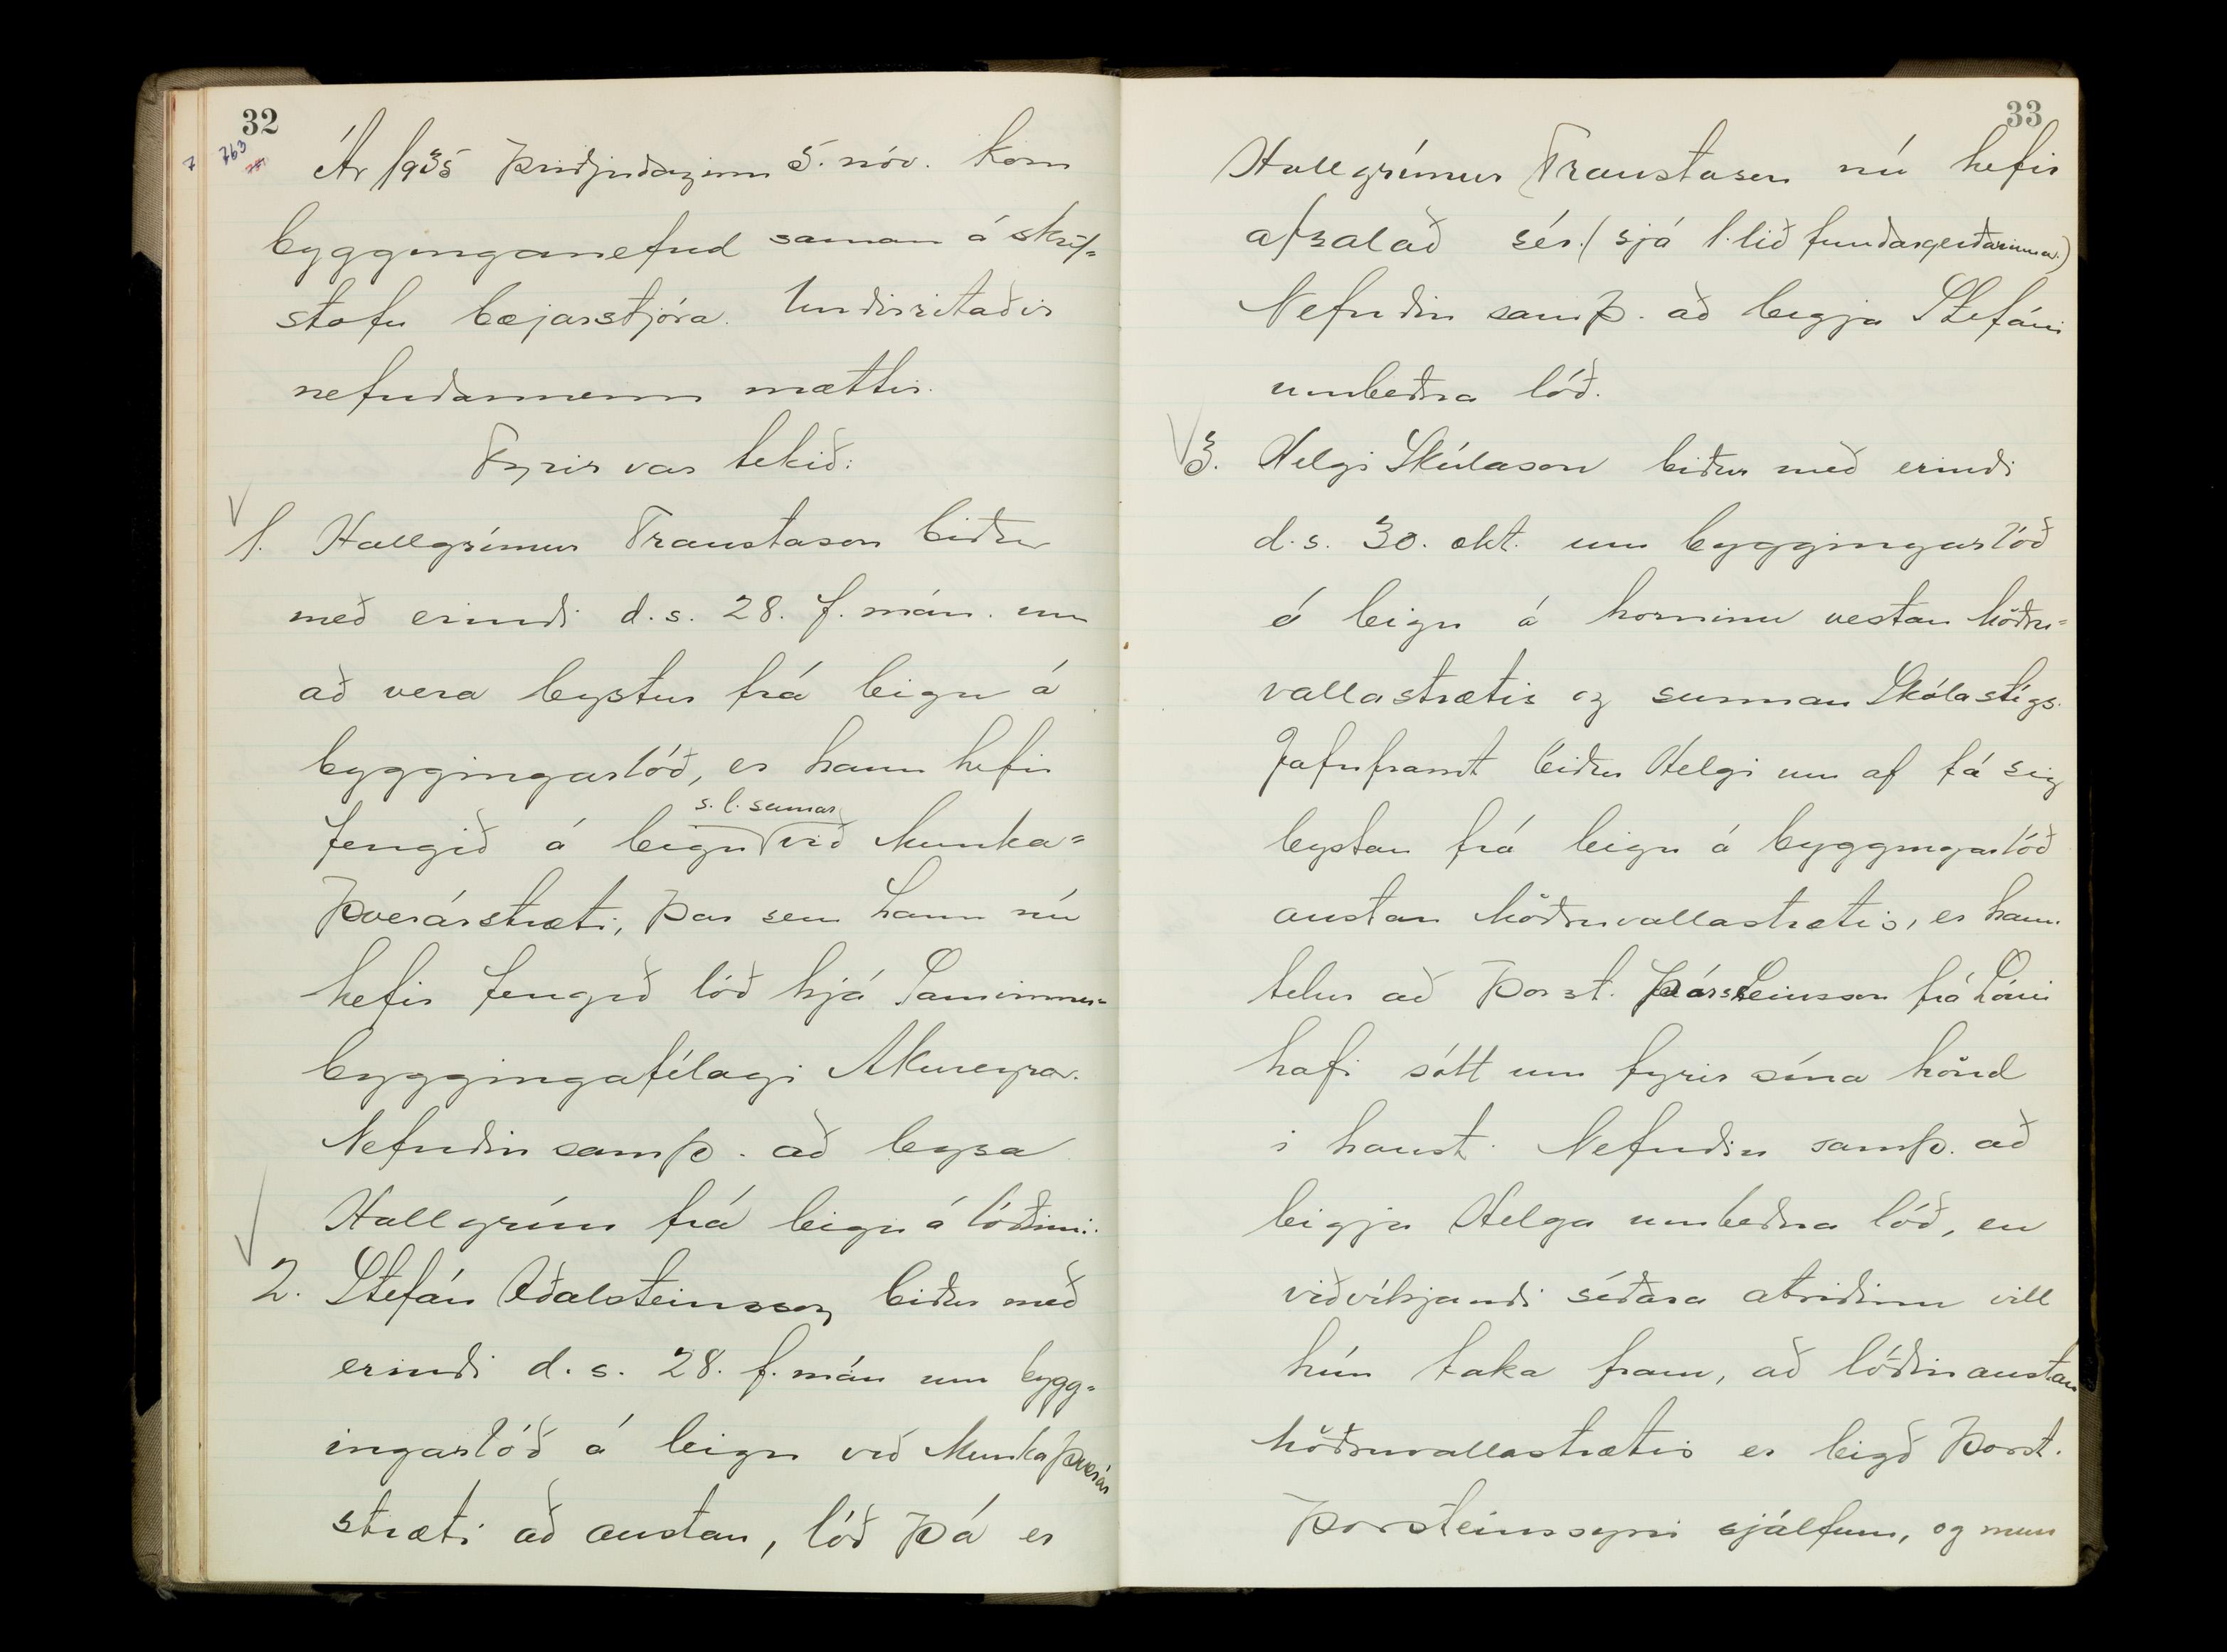 32
763
Ár 1935 þriðjudaginn 5. nóv. kom
bygginganefnd saman á skrif=
stofu bæjarstjóra. Undirritaðir
nefndarmenn mættir.
Fyrir var tekið:
1. Hallgrímur Traustason biður
með erindi d.s. 28. f. mán. um
að vera leystur frá leigu á
byggingarlóð, er hann hefir
s.l. sumar
fengið á leigu við Munka=
þverárstræti, þar sem hann nú
hefir fengið lóð hjá Samvinnu=
byggingafélagi Akureyrar.
Nefndin samþ. að leysa
Hallgrím frá leigu á lóðinni.
2. Stefán Aðalsteinsson biður með
erindi d.s. 28. f. mán um bygg=
ingarlóð á leigu við Munkaþverár
stræti að austan, lóð þá er
33
Hallgrímur Traustason nú hefir
afsalað sér. (sjá 1. lið fundargerðarinnar.)
Nefndin samþ. að leigja Stefáni
umbeðna lóð.
3. Helgi Skúlason biður með erindi
d.s. 30. okt. um byggingarlóð
á leigu á horninu vestan Möðru=
vallastrætis og sunnan Skólastígs.
Jafnframt biður Helgi um af fá sig
leystan frá leigu á byggingarlóð
austan Möðruvallastrætis, er hann
telur að Þorst. Þorsteinsson frá Lóni
hafi sótt um fyrir sína hönd
í haust. Nefndin samþ. að
leigja Helga umbeðna lóð, en
viðvíkjandi síðara atriðinu vill
hún taka fram, að lóðin austan
Möðruvallastrætis er leigð Þorst.
Þorsteinssyni sjálfum, og mun